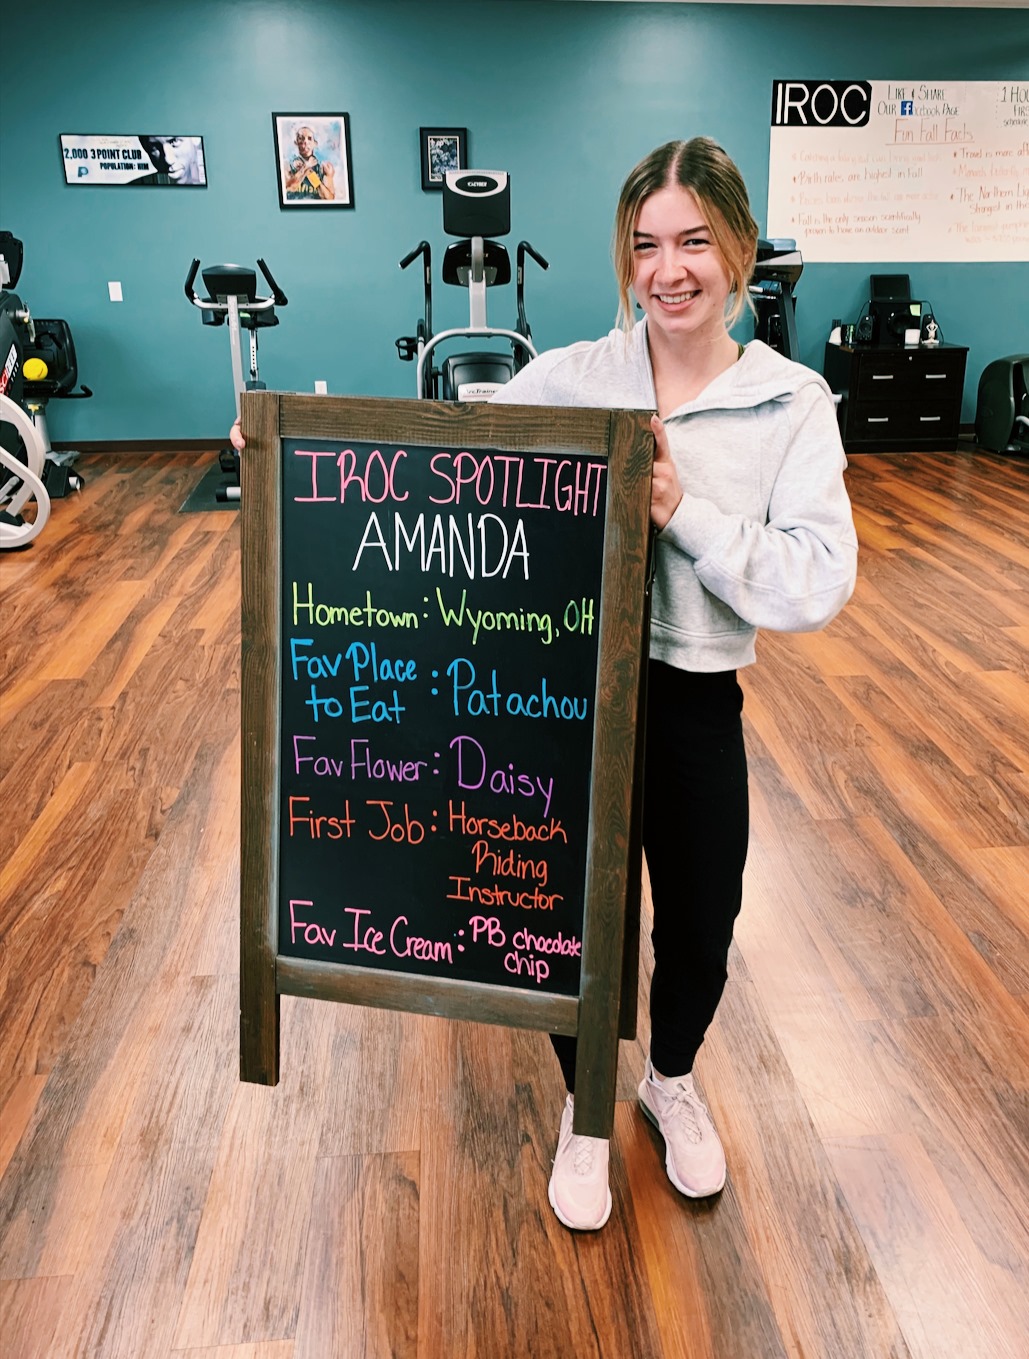 2,000 3 POINT CLUB
POPULATION: HIM
IROC
LIKE & SHARE
OUR f facebook PAGE
Fun Fall Facts
Birth rates are highest in Fall
Fall is the only season scientifically
proven to have an outdoor scent
1 HOU
FIRS
Travel is more aff
The Northern Lig
IROC SPOTLIGHT
AMANDA
Hometown: Wyoming, OH
Fav Place
to Eat : Patachou
Fav Flower: Daisy
First Job: Horseback
Riding
Instructor
Fav Ice Cream: PB chocolate
chip